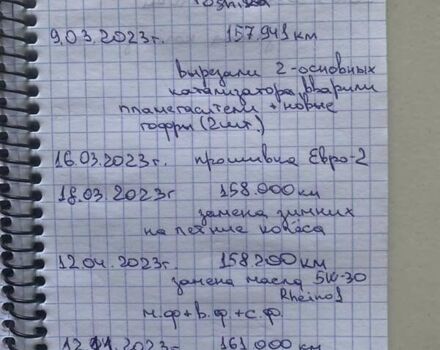 Toshiba
9.03.2023г. 157.941км
вырезали 2-основных
катализатора, вварили
пламегасители + новые
гофры (2шт.)
16.03.2023г. прошивка Евро-2
18.03.2023г 158.000км
замена зимних
на летние колёса
12.04.2023г. 158.200 км
замена масла 5W-30
Rheinol
м.ф+в.ф+с.ф.
12.11.2023г. 161.000км